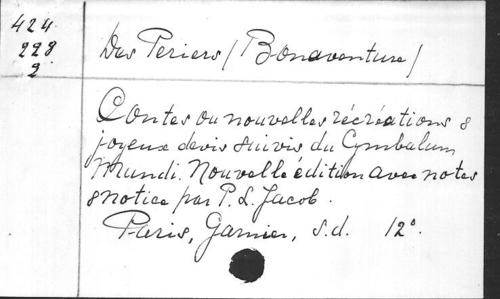 424
228
2
Des Periers / Bonaventure /
Contes ou nouvelles récréations &
joyeux devis suivis du Cymbalum
Mundi. Nouvelle édition avec notes
& notice par P. L. Jacob.
Paris, Garnier, s.d. 12°.